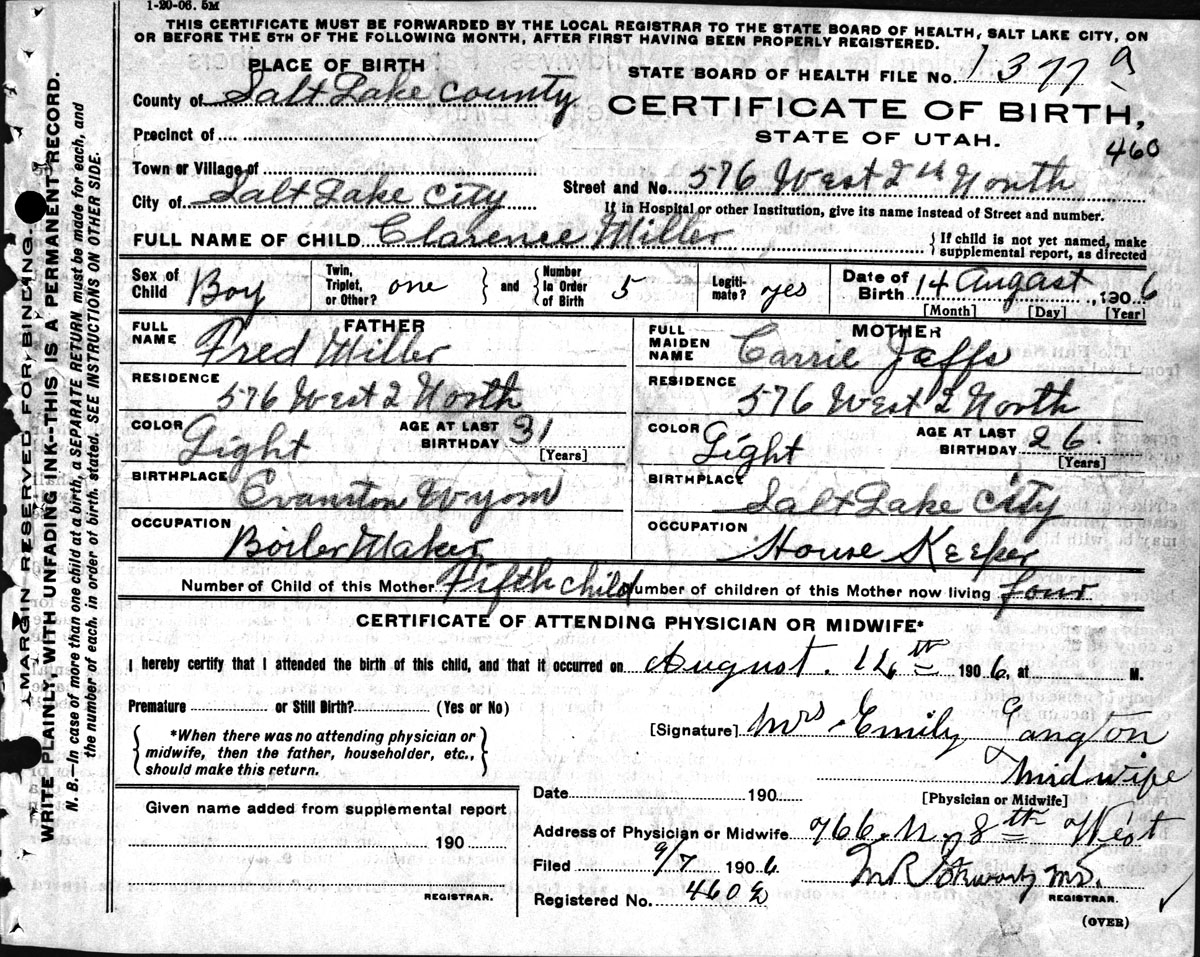 1-20-06. 5M
THIS CERTIFICATE MUST BE FORWARDED BY THE LOCAL REGISTRAR TO THE STATE BOARD OF HEALTH, SALT LAKE CITY, ON
OR BEFORE THE 5TH OF THE FOLLOWING MONTH, AFTER FIRST HAVING BEEN PROPERLY REGISTERED.
MARGIN RESERVED FOR BINDING.
WRITE PLAINLY, WITH UNFADING INK--THIS IS A PERMANENT RECORD.
N. B.—In case of more than one child at a birth, a SEPARATE RETURN must be made for each, and
the number of each, in order of birth, stated. SEE INSTRUCTIONS ON OTHER SIDE.
PLACE OF BIRTH
STATE BOARD OF HEALTH FILE No. 1377
County of Salt Lake County
CERTIFICATE OF BIRTH,
STATE OF UTAH.
Precinct of
460
Town or Village of
City of Salt Lake City
Street and No. 576 West 2th North
If in Hospital or other Institution, give its name instead of Street and number.
FULL NAME OF CHILD Clarence Miller
If child is not yet named, make
supplemental report, as directed
Sex of Child Boy
Twin, Triplet, or Other? one
and
Number In Order of Birth 5
Legiti-mate? yes
Date of Birth 14 Augast, 1906
[Month] [Day] [Year]
FATHER
FULL NAME Fred Miller
RESIDENCE 576 West 2 North
COLOR Light
AGE AT LAST BIRTHDAY 31 [Years]
BIRTHPLACE Evanston Wyom
OCCUPATION Boiler Maker
MOTHER
FULL MAIDEN NAME Carrie Jaffs
RESIDENCE 576 West 2 North
COLOR Light
AGE AT LAST BIRTHDAY 26 [Years]
BIRTHPLACE Salt Lake City
OCCUPATION House Keeper
Number of Child of this Mother Fifth child Number of children of this Mother now living four
CERTIFICATE OF ATTENDING PHYSICIAN OR MIDWIFE*
I hereby certify that I attended the birth of this child, and that it occurred on August. 1906, at M.
Premature or Still Birth? (Yes or No)
*When there was no attending physician or
midwife, then the father, householder, etc.,
should make this return.
[Signature] Mrs Emily
Midwife
[Physician or Midwife]
Date 190
Address of Physician or Midwife 766 N. 8th West
Given name added from supplemental report
190
REGISTRAR.
Filed 9/7 1906
REGISTRAR.
Registered No. 460
(OVER)